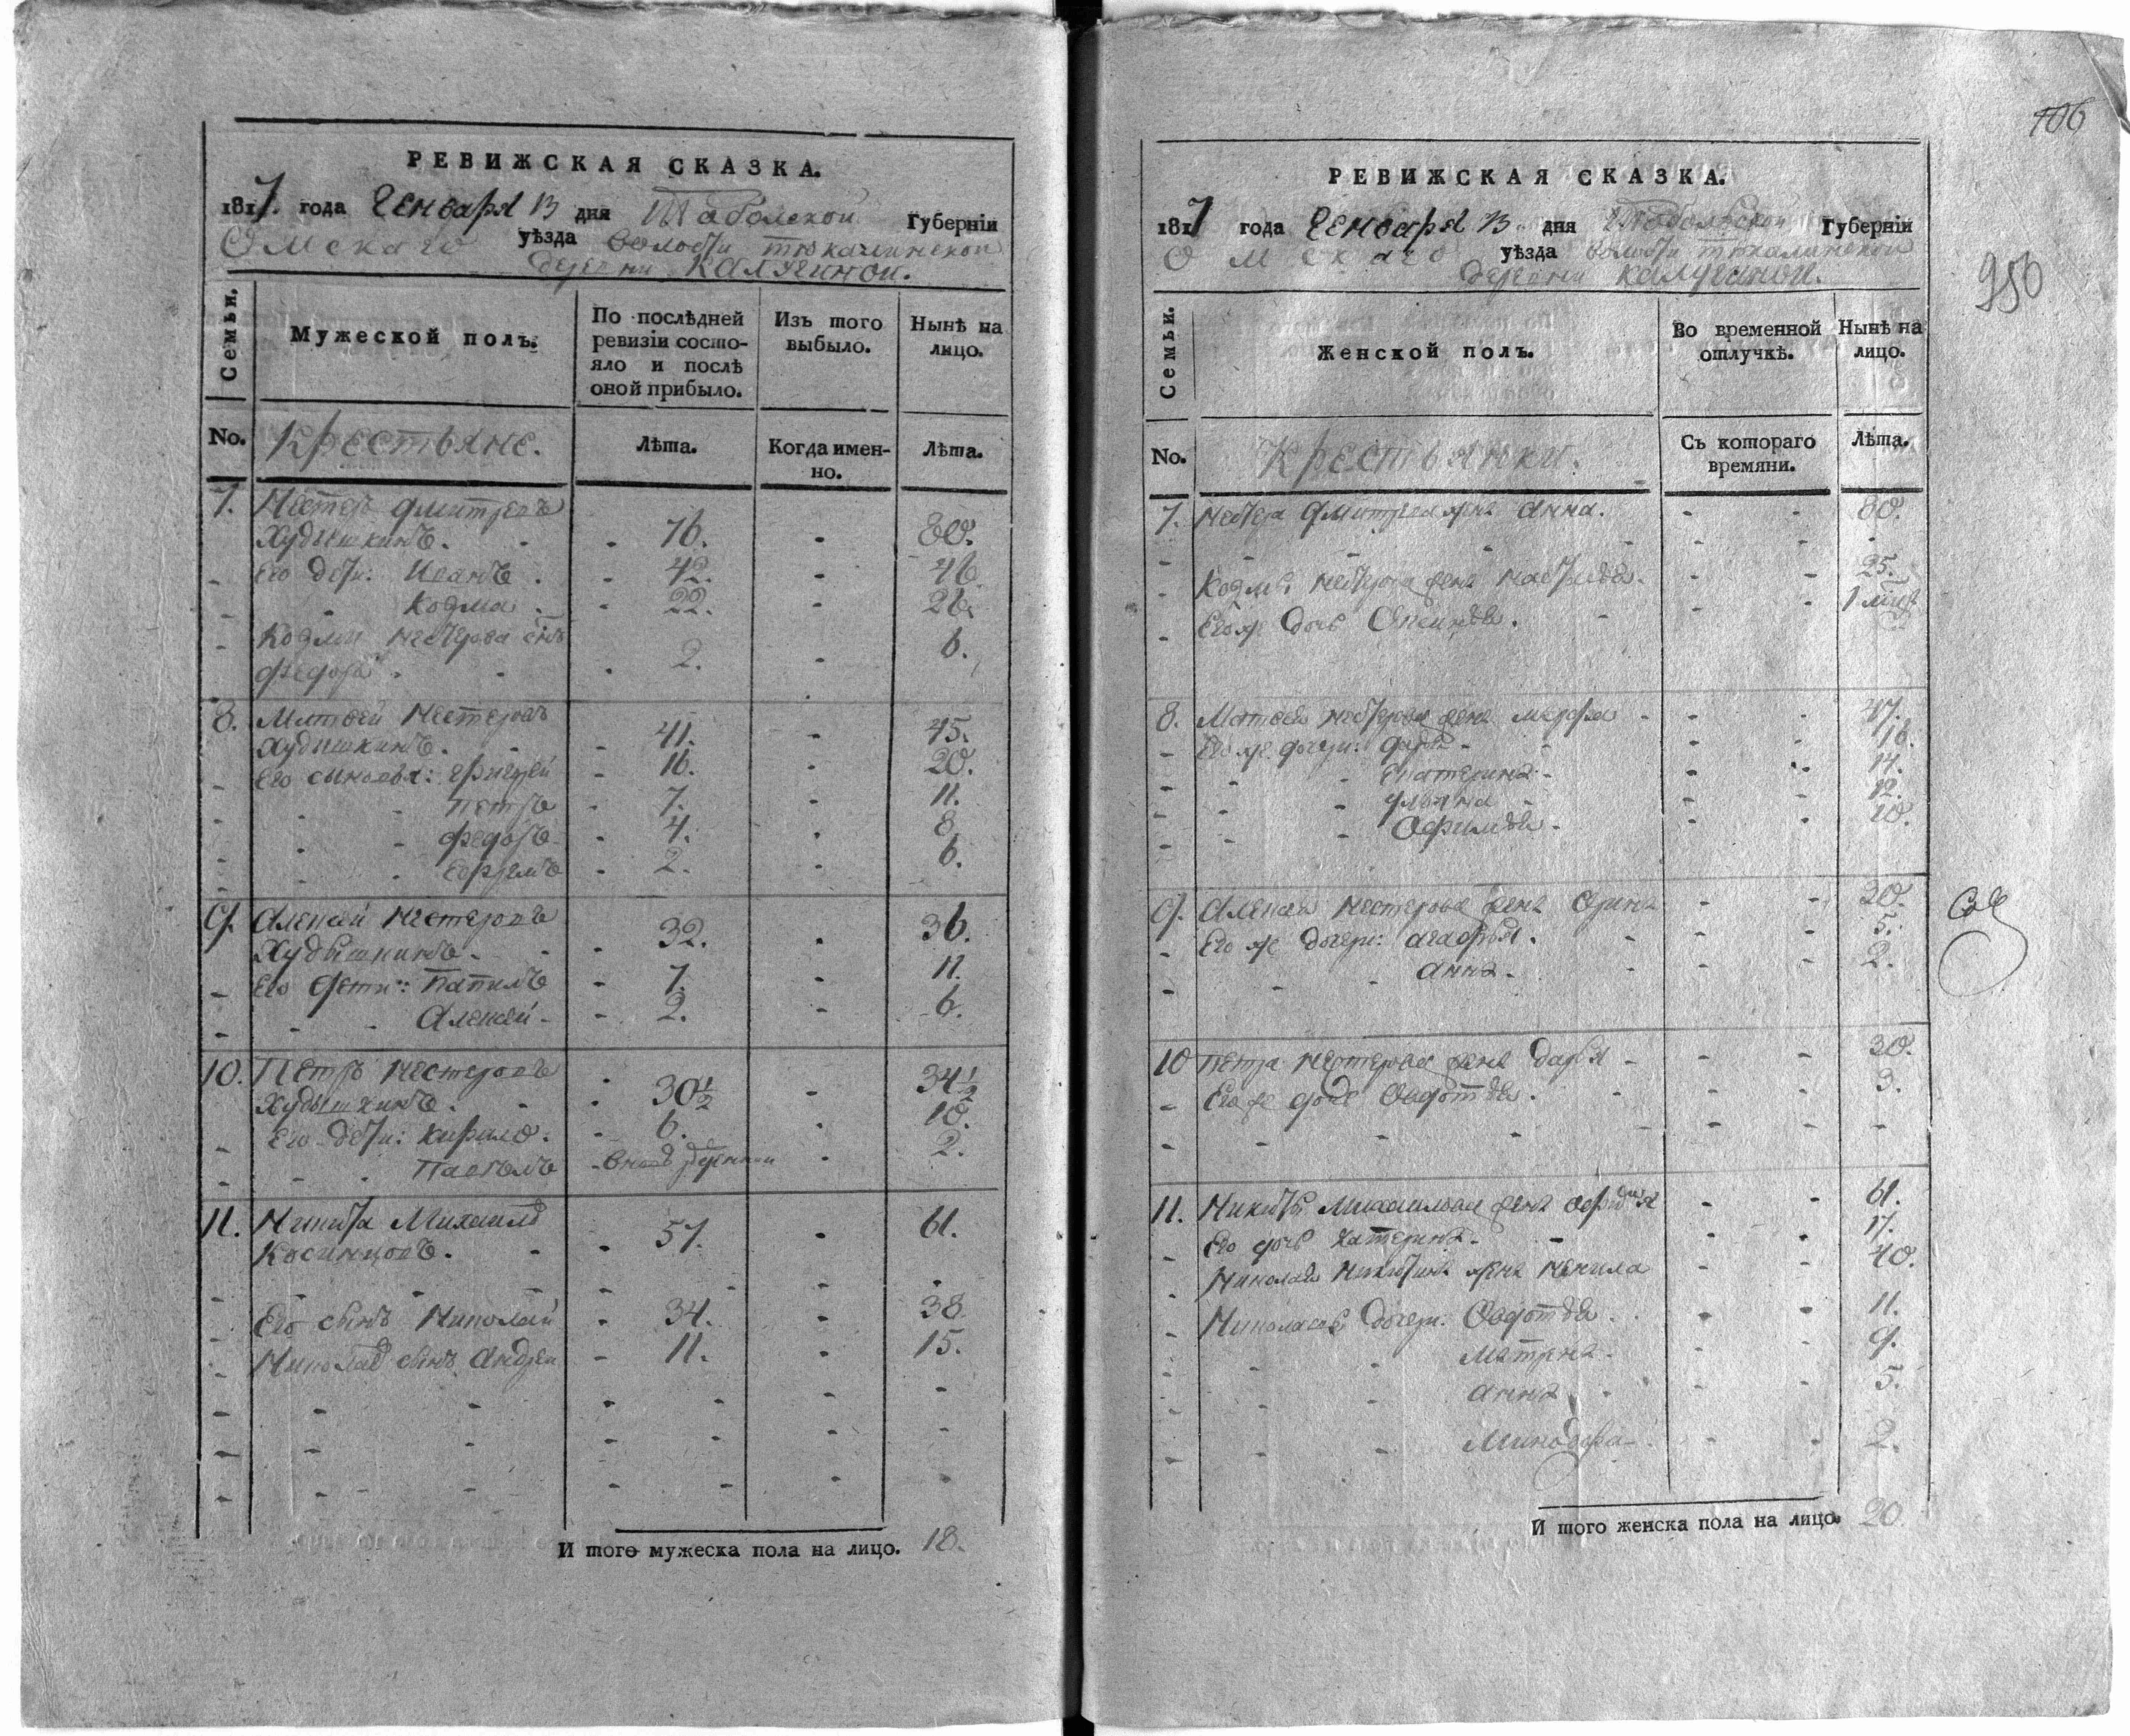 РЕВИЖСКАЯ СКАЗКА.
1817. года Генваря 13 дня Тобольской Губерніи
Омскаго уѣзда волости тюкалинской
деревни Калугиной.
Семьи.
Мужеской полъ.
По послѣдней ревизіи состо-
яло и послѣ
оной прибыло.
Изъ того
выбыло.
Нынѣ на
лицо.
No. Крестьяне. Лѣта. Когда имен-
но.
Лѣта.
7. Нестеръ Дмитревъ
Худышкинъ. 76. 80.
Его дети: Иванъ. 42. 46.
Козма 22. 26.
Козмы Нестерова сынъ
Федоръ 2. 6.
8. Матвей Нестеровъ
Худышкинъ. 41. 45.
Его сыновья: 16. 20.
Петръ 7. 11.
Федоръ 4. 8.
Ефремъ 2. 6.
9. Алексей Нестеровъ
Худышкинъ. 32. 36.
Его дети: Патапъ 7. 11.
Алексей 2. 6.
10. Петръ Нестеровъ
Худышкинъ. 30½ 34½
Его дети: Кирило. 6. 10.
Павелъ 2.
11. Никита Михайлов
Косинцовъ. 57. 61.
Его сынъ Николай 34. 38
Николая сынъ Андрей 11. 15.
И того мужеска пола на лицо. 18.
106
950
РЕВИЖСКАЯ СКАЗКА.
1817 года Генваря 13 дня Тобольской Губерніи
Омскаго уѣзда волости тюкалинской
деревни Калугиной.
Семьи.
Женской полъ.
Во временной
отлучкѣ.
Нынѣ на
лицо.
No. Крестьянки. Съ котораго
времяни.
Лѣта.
7. Нестера Дмитрева жена Анна. 80.
Козмы Нестерова жена Настасья. 25.
Его же дочь 1
8. Матвея Нестерова жена Марфа 47.
Его же дочери: Дарья 16.
Екатерина 14.
12.
Офимья. 10.
9. Алексея Нестерова жена Орина 30.
Его же дочери: Агафья. 5.
Анна. 2.
10 Петра Нестерова жена Дарья 30.
Его же дочь Овдотья. 3.
11. Никиты Михайлова жена 61.
Его дочь Катерина. 17.
Николая Никитина жена Ненила 40.
Николаевы дочери: Овдотья. 11.
Матрена. 9.
Анна 5.
Минодора 2.
И того женска пола на лицо. 20.